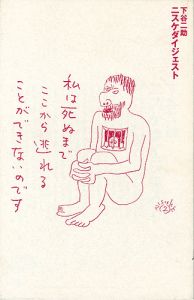 下谷二助
ニスケダイジェスト
私は死ぬまで
ここから逃れる
ことができないのです